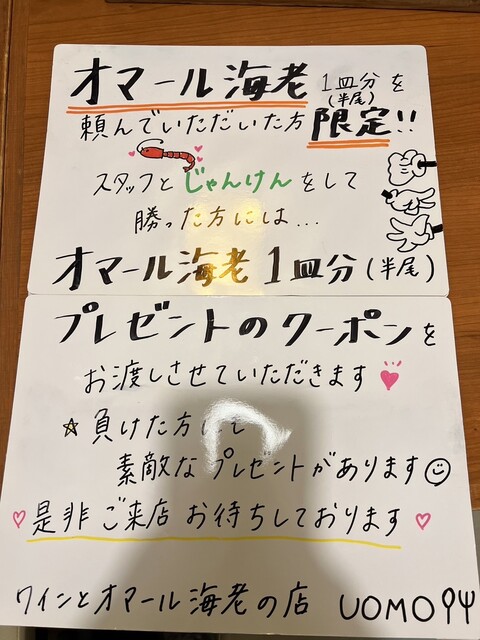 オマール海老 1皿分を
(半尾)
頼んでいただいた方 限定!!
スタッフとじゃんけんをして
勝った方には...
オマール海老 1皿分(半尾)
プレゼントのクーポンを
お渡しさせていただきます
☆負けた方にも
素敵なプレゼントがあります
是非ご来店お待ちしております
ワインとオマール海老の店 UOMO